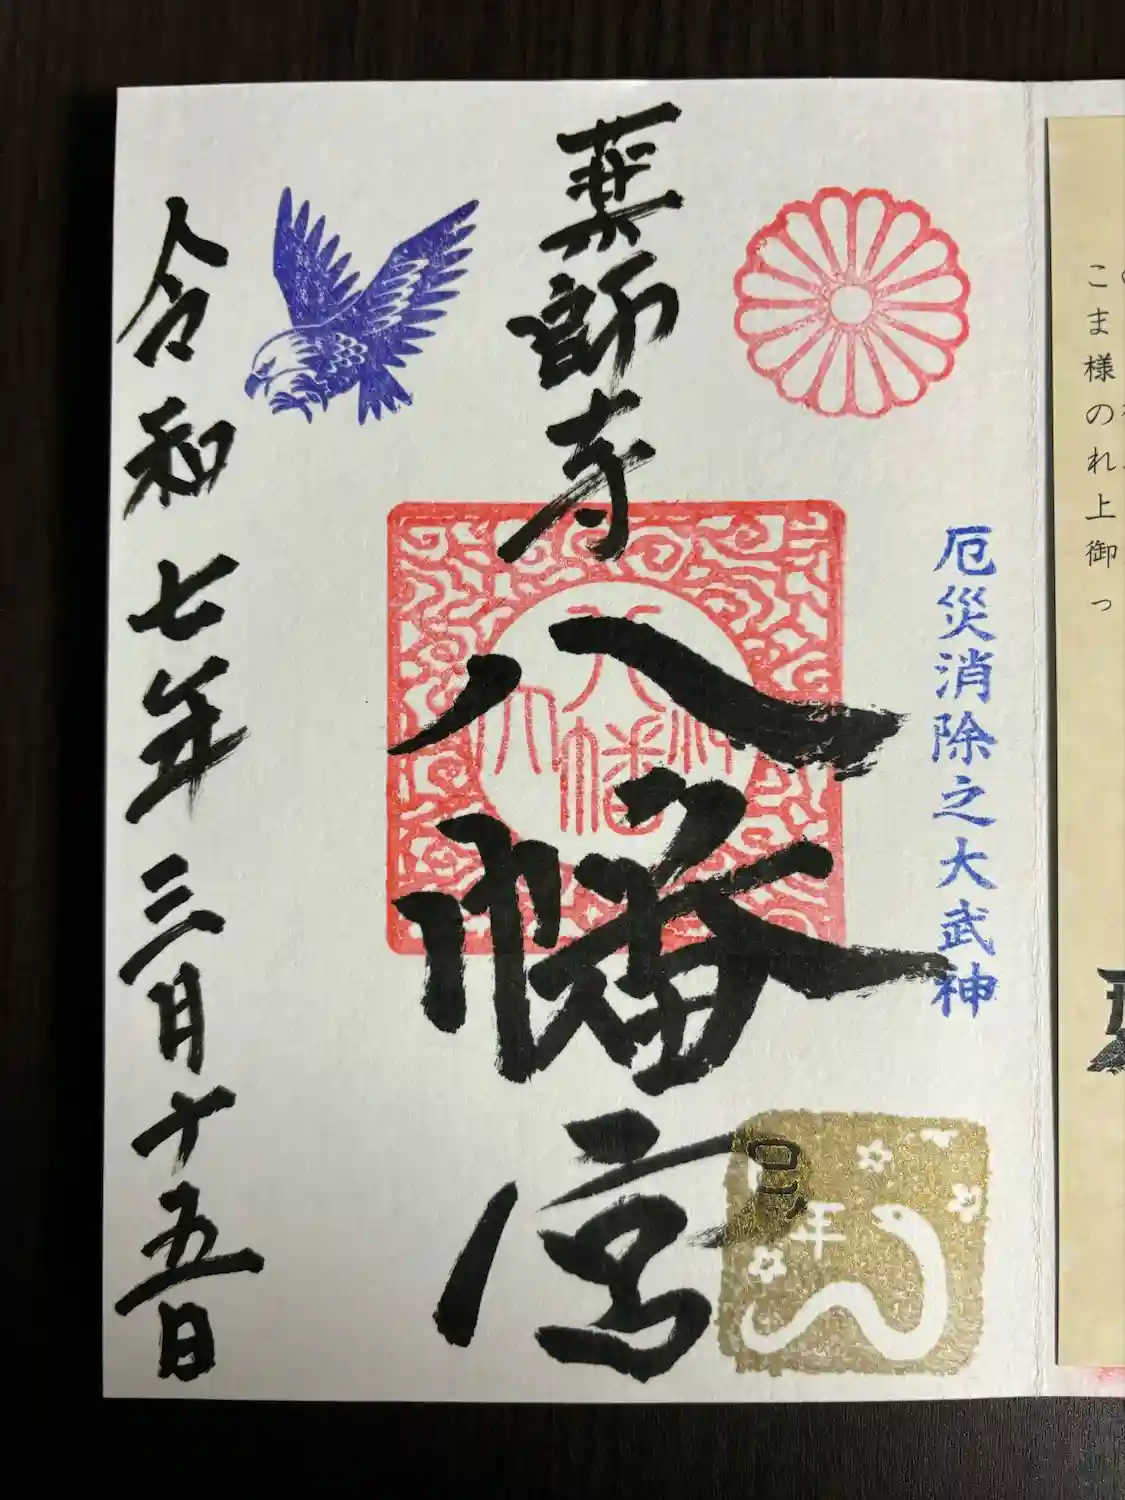 こま様のれ上御っ
厄災消除之大武神
薬師寺
八幡宮
八幡
巳年
令和七年三月十五日